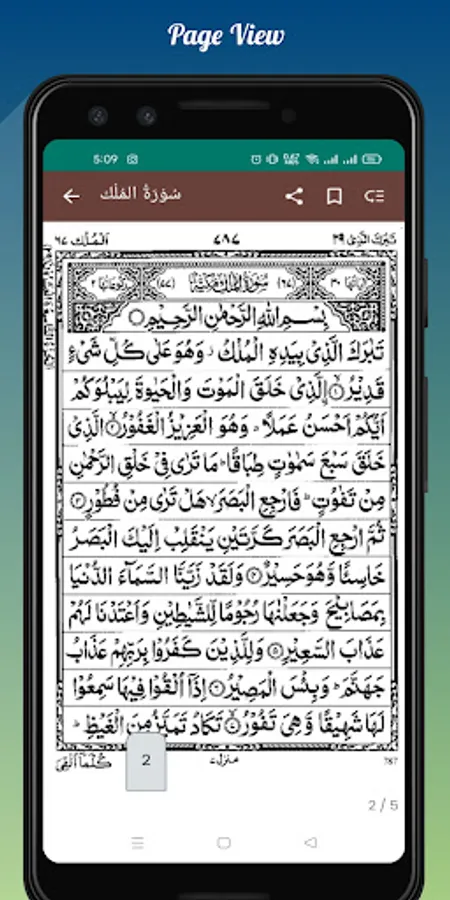 Page View
5:09
سُوْرَةُ المُلْك
تَبٰرَكَ الَّذِیْ ۲۹
۷۹۷
اَلْمُلْك ۶۷
اٰیَاتُهَا ۳۰
(۶۷) سُوْرَةُ الْمُلْكِ مَكِّیَّةٌ (۷۷)
رُكُوْعَاتُهَا ۲
بِسْمِ اللّٰهِ الرَّحْمٰنِ الرَّحِیْمِ
تَبٰرَكَ الَّذِیْ بِیَدِهِ الْمُلْكُ ؗ وَهُوَ عَلٰى كُلِّ شَیْءٍ
قَدِیْرُۙ۝۱ الَّذِیْ خَلَقَ الْمَوْتَ وَالْحَیٰوةَ لِیَبْلُوَكُمْ
اَیُّكُمْ اَحْسَنُ عَمَلًا ؕ وَهُوَ الْعَزِیْزُ الْغَفُوْرُۙ۝۲ الَّذِیْ
خَلَقَ سَبْعَ سَمٰوٰتٍ طِبَاقًا ؕ مَا تَرٰى فِیْ خَلْقِ الرَّحْمٰنِ
مِنْ تَفٰوُتٍ ؕ فَارْجِعِ الْبَصَرَ ۙ هَلْ تَرٰى مِنْ فُطُوْرٍ۝۳
ثُمَّ ارْجِعِ الْبَصَرَ كَرَّتَیْنِ یَنْقَلِبْ اِلَیْكَ الْبَصَرُ
خَاسِئًا وَّهُوَ حَسِیْرٌ۝۴ وَلَقَدْ زَیَّنَّا السَّمَآءَ الدُّنْیَا
بِمَصَابِیْحَ وَجَعَلْنٰهَا رُجُوْمًا لِّلشَّیٰطِیْنِ وَاَعْتَدْنَا لَهُمْ
عَذَابَ السَّعِیْرِ۝۵ وَلِلَّذِیْنَ كَفَرُوْا بِرَبِّهِمْ عَذَابُ
جَهَنَّمَ ؕ وَبِئْسَ الْمَصِیْرُ۝۶ اِذَاۤ اُلْقُوْا فِیْهَا سَمِعُوْا
لَهَا شَهِیْقًا وَّهِیَ تَفُوْرُۙ۝۷ تَكَادُ تَمَیَّزُ مِنَ الْغَیْظِ ؕ
كُلَّمَاۤ اُلْقِیَ
منزل ۷
787
2
2 / 5